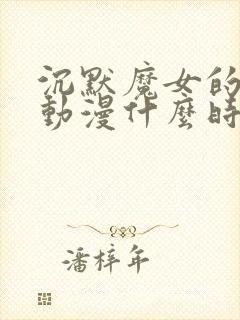 沉默魔女的
動漫什麼時
潘梓年